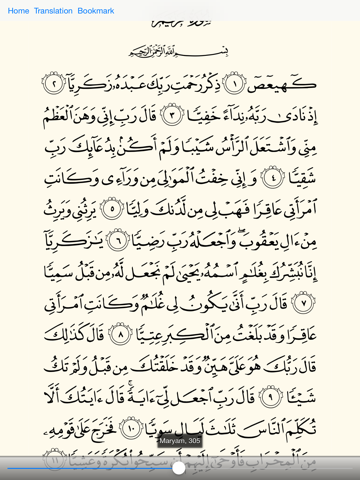 Home Translation Bookmark
بِسْمِ اللَّهِ الرَّحْمَٰنِ الرَّحِيمِ
كٓهيعٓصٓ ١ ذِكْرُ رَحْمَتِ رَبِّكَ عَبْدَهُۥ زَكَرِيَّآ ٢
إِذْ نَادَىٰ رَبَّهُۥ نِدَآءً خَفِيًّا ٣ قَالَ رَبِّ إِنِّى وَهَنَ ٱلْعَظْمُ
مِنِّى وَٱشْتَعَلَ ٱلرَّأْسُ شَيْبًا وَلَمْ أَكُنۢ بِدُعَآئِكَ رَبِّ
شَقِيًّا ٤ وَإِنِّى خِفْتُ ٱلْمَوَٰلِىَ مِن وَرَآءِى وَكَانَتِ
ٱمْرَأَتِى عَاقِرًا فَهَبْ لِى مِن لَّدُنكَ وَلِيًّا ٥ يَرِثُنِى وَيَرِثُ
مِنْ ءَالِ يَعْقُوبَ ۖ وَٱجْعَلْهُ رَبِّ رَضِيًّا ٦ يَٰزَكَرِيَّآ
إِنَّا نُبَشِّرُكَ بِغُلَٰمٍ ٱسْمُهُۥ يَحْيَىٰ لَمْ نَجْعَل لَّهُۥ مِن قَبْلُ سَمِيًّا
٧ قَالَ رَبِّ أَنَّىٰ يَكُونُ لِى غُلَٰمٌ وَكَانَتِ ٱمْرَأَتِى
عَاقِرًا وَقَدْ بَلَغْتُ مِنَ ٱلْكِبَرِ عِتِيًّا ٨ قَالَ كَذَٰلِكَ
قَالَ رَبُّكَ هُوَ عَلَىَّ هَيِّنٌ وَقَدْ خَلَقْتُكَ مِن قَبْلُ وَلَمْ تَكُ
شَيْـًٔا ٩ قَالَ رَبِّ ٱجْعَل لِّىٓ ءَايَةً ۚ قَالَ ءَايَتُكَ أَلَّا
تُكَلِّمَ ٱلنَّاسَ ثَلَٰثَ لَيَالٍ سَوِيًّا ١٠ فَخَرَجَ عَلَىٰ قَوْمِهِۦ
Maryam, 305
مِنَ ٱلْمِحْرَابِ فَأَوْحَىٰٓ إِلَيْهِمْ أَن سَبِّحُوا۟ بُكْرَةً وَعَشِيًّا ١١